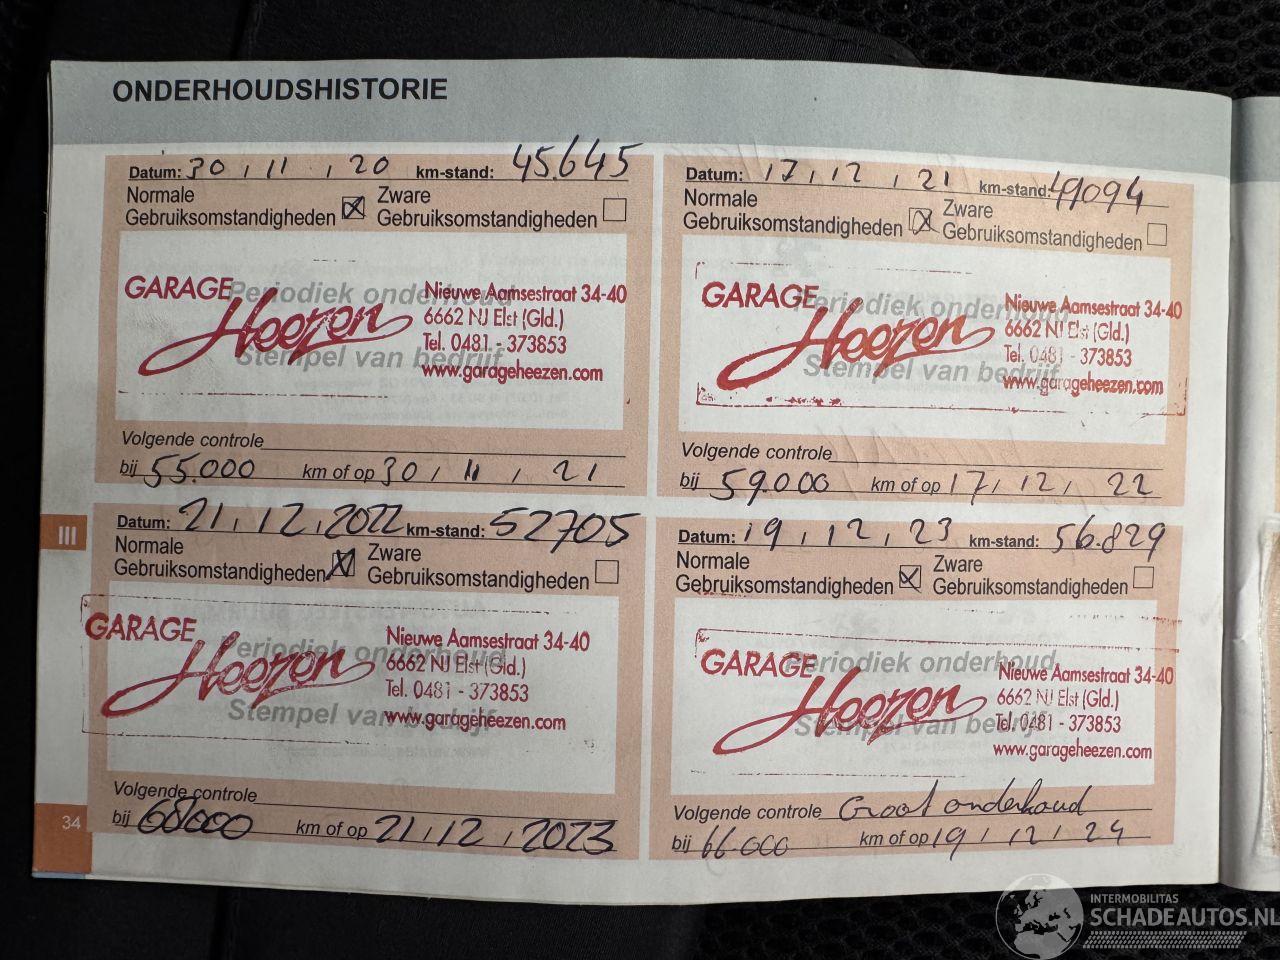 ONDERHOUDSHISTORIE
Datum: 30, 11, 20 km-stand: 45.645
Normale Gebruiksomstandigheden ☒ Zware Gebruiksomstandigheden ☐
Periodiek onderhoud
Stempel van bedrijf
GARAGE Heezen
Nieuwe Aamsestraat 34-40
6662 NJ Elst (Gld.)
Tel. 0481 - 373853
www.garageheezen.com
Volgende controle
bij 55.000 km of op 30, 11, 21
Datum: 17, 12, 21 km-stand: 49094
Normale Gebruiksomstandigheden ☒ Zware Gebruiksomstandigheden ☐
Periodiek onderhoud
Stempel van bedrijf
GARAGE Heezen
Nieuwe Aamsestraat 34-40
6662 NJ Elst (Gld.)
Tel. 0481 - 373853
www.garageheezen.com
Volgende controle
bij 59.000 km of op 17, 12, 22
III
Datum: 21, 12, 2022 km-stand: 52705
Normale Gebruiksomstandigheden ☒ Zware Gebruiksomstandigheden ☐
Periodiek onderhoud
Stempel van bedrijf
GARAGE Heezen
Nieuwe Aamsestraat 34-40
6662 NJ Elst (Gld.)
Tel. 0481 - 373853
www.garageheezen.com
Volgende controle
bij km of op 21, 12, 2023
Datum: 19, 12, 23 km-stand: 56.829
Normale Gebruiksomstandigheden ☒ Zware Gebruiksomstandigheden ☐
Periodiek onderhoud
Stempel van bedrijf
GARAGE Heezen
Nieuwe Aamsestraat 34-40
6662 NJ Elst (Gld.)
Tel. 0481 - 373853
www.garageheezen.com
Volgende controle Groot onderhoud
bij 66.000 km of op 19, 12, 24
34
INTERMOBILITAS
SCHADEAUTOS.NL